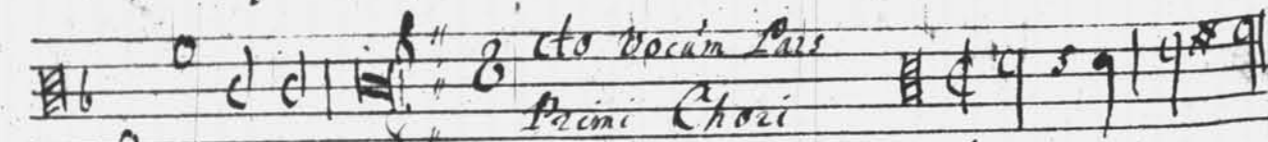 8 cto vocum Pars
Primi Chori